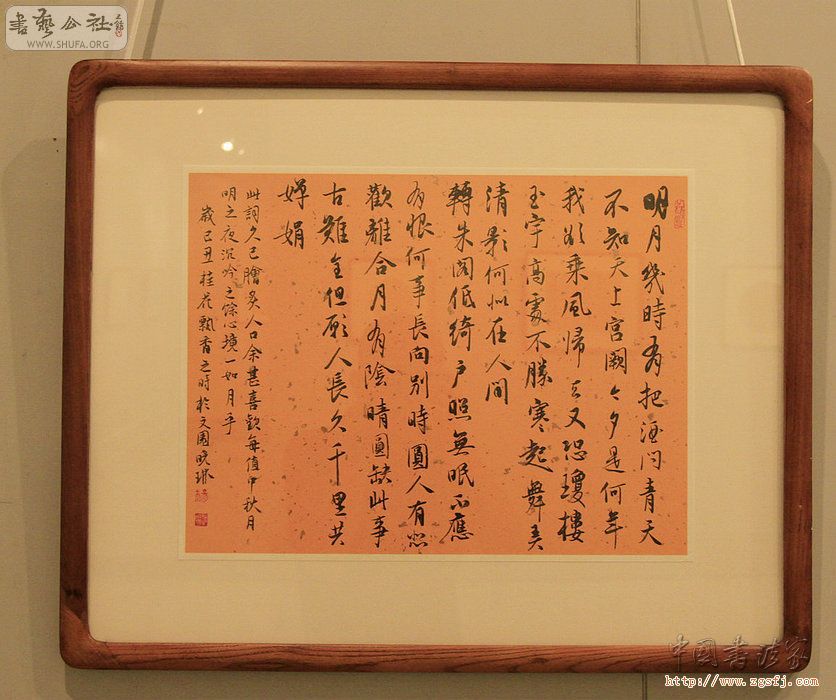 書藝公社
WWW.SHUFA.ORG
明月幾時有把酒问青天
不知天上宫闕今夕是何年
我欲乘風歸去又恐瓊樓
玉宇高處不勝寒起舞弄
清影何似在人間
轉朱阁低綺户照無眠不應
有恨何事長向别時圓人有悲
歡離合月有陰晴圓缺此事
古難全但願人長久千里共
嬋娟
此詞久已膾炙人口余甚喜歡每值中秋月
明之夜沉吟之餘心境一如月乎
歲己丑桂花飄香之時於文園晓琳
中國書法家
http://www.zgsfj.com